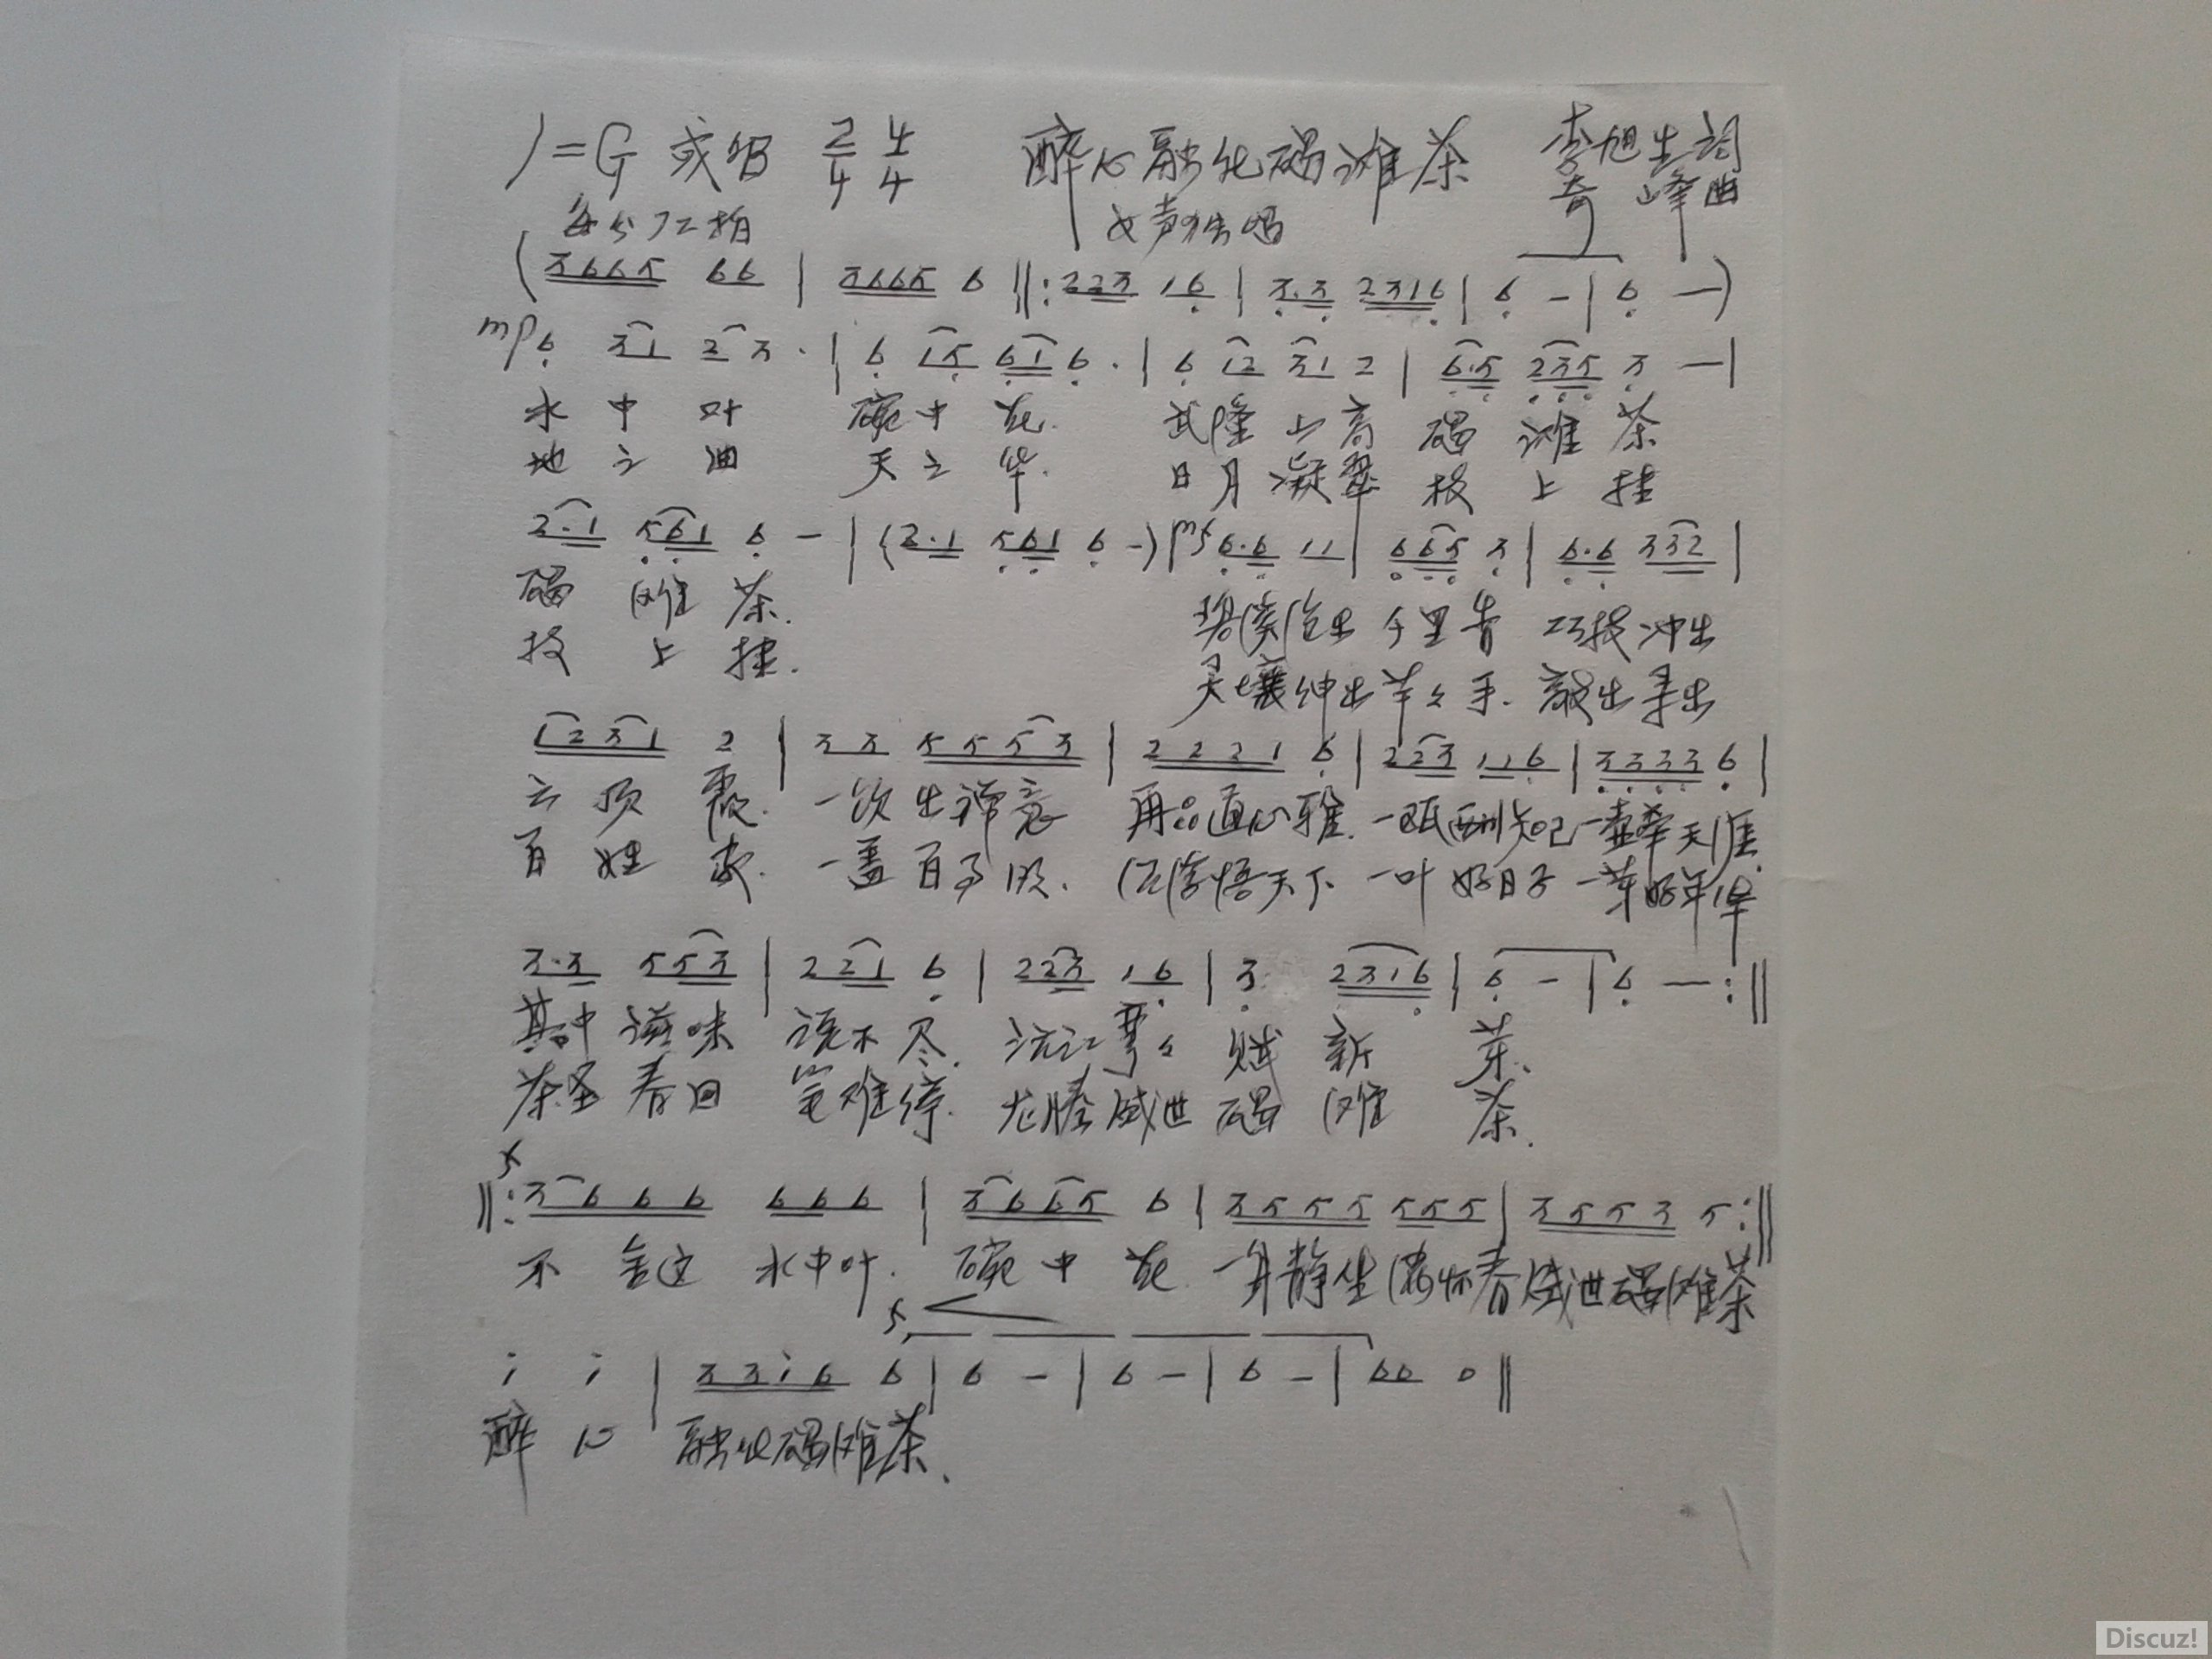 1=G 或 B 2/4 4/4 醉心融化碣滩茶 李旭生词
每分72拍 女声独唱 奇峰曲
(3665 66 | 3665 6 ‖: 223 16 | 3.3 2316 | 6 - | 6 —)
mp 6 31 23. | 6 15 61 6. | 6 12 31 2 | 6.5 235 3 — |
水中叶 碗中花. 武陵山高碣滩茶
地之曲 天之华. 日月凝翠枝上挂
2.1 561 6 - | (2.1 561 6 -) | mf 6.6 11 | 665 3 | 6.6 332 |
碣滩茶. 碧溪 出千里香 冲出
枝上挂. 灵壤伸出芊々手. 献出 出
1231 2 | 33 5553 | 2221 6 | 223 116 | 3333 6 |
云顶霞. 一饮生禅意 再品道心雅. 一瓯酬知己一壶牵天涯.
百姓家. 一盏百事顺. 悟天下. 一叶好日子一芽好年华
3.3 553 | 221 6 | 223 16 | 3 2316 | 6 - | 6 — :‖
其中滋味说不尽. 沅江弯々赋新芽.
茶圣春回 难停. 龙腾盛世碣滩茶.
f
‖: 3666 666 | 3665 6 | 3555 555 | 3553 5 :‖
不舍这水中叶. 碗中花. 静坐满怀春盛世碣滩茶
f <
i i | 33i6 6 | 6 - | 6 - | 6 - | 66 0 ‖
醉心融化碣滩茶.
Discuz!